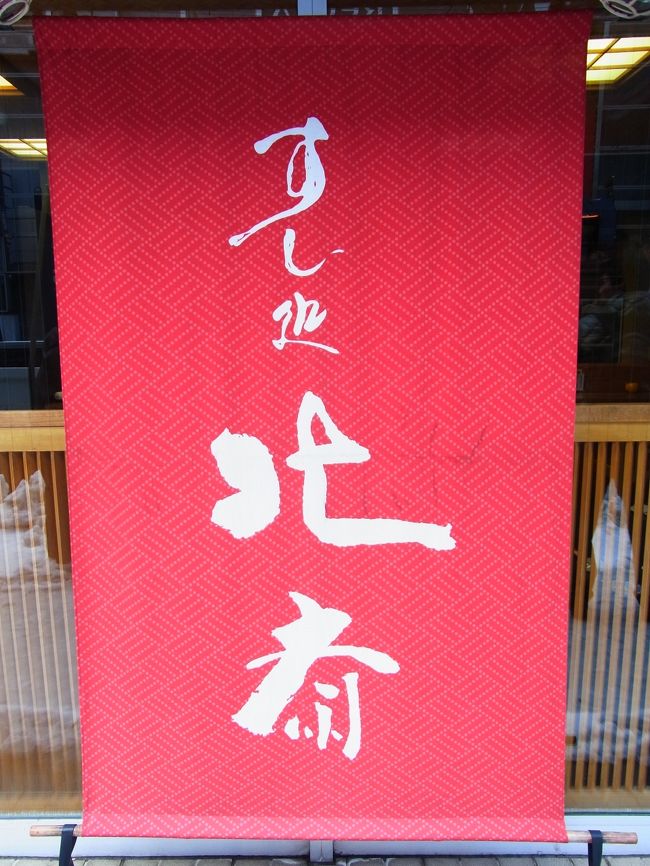 すし処
北泰